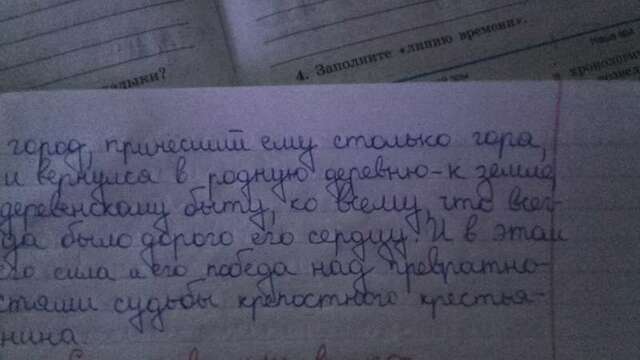 4. Заполните «линию времени».
город, принёсший ему столько горя,
и вернулся в родную деревню-к земле,
деревенскому быту, ко всему, что всег-
да было дорого его сердцу. И в этом
его сила и его победа над превратно-
стями судьбы крепостного крестья-
нина.